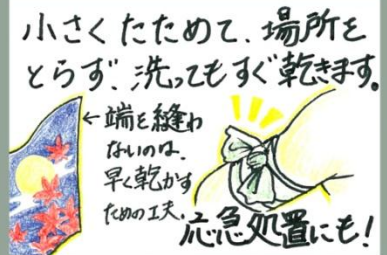 小さくたためて、場所を
とらず、洗ってもすぐ乾きます。
←端を縫わ
ないのは、
早く乾かす
ための工夫。
応急処置にも!